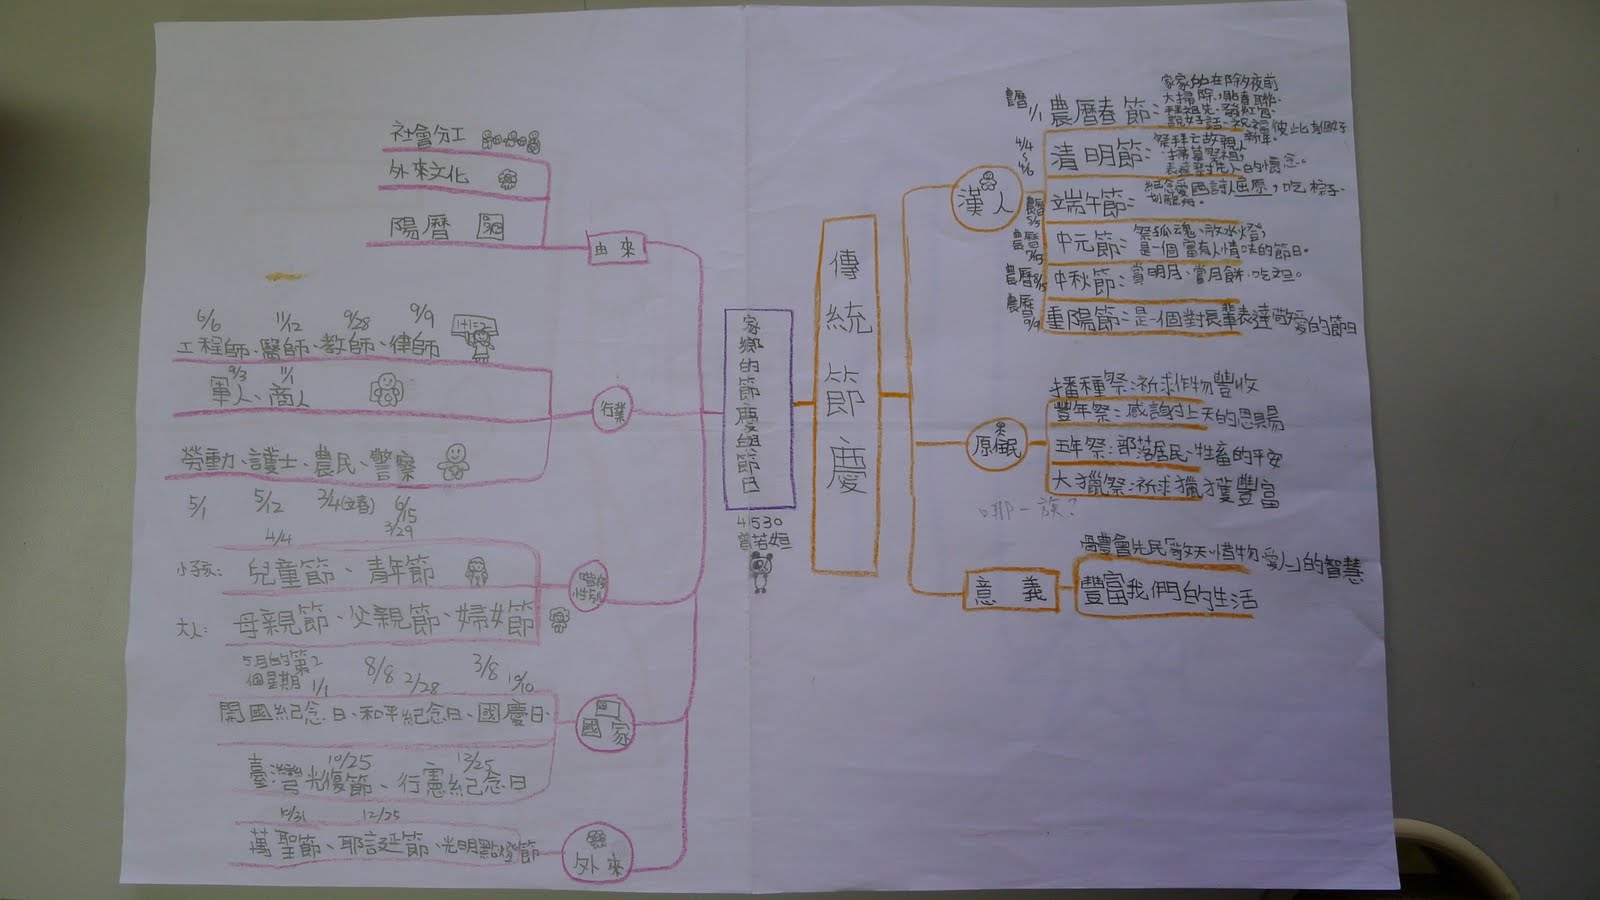 家鄉的節慶與節日
41530
傳統節慶
漢人
農曆
1/1
農曆春節：
家家戶戶在除夕夜前
大掃除，貼春聯、
拜祖先、發紅包、
說好話、祝福彼此新年
4/4
5
4/6
清明節：
祭拜亡故親人
掃墓祭祖，
表達對先人的懷念。
農曆
5/5
端午節：
紀念愛國詩人屈原，吃粽子、
划龍舟。
農曆
中元節：
祭孤魂、放水燈，
是一個富有人情味的節日。
農曆
中秋節：賞明月、嘗月餅、吃
農曆
9/9
重陽節：是一個對長輩表達敬愛的節日
原住民
播種祭：祈求作物豐收
豐年祭：感謝上天的恩賜
五年祭：部落居民、牲畜的平安
大獵祭：祈求獵獲豐富
哪一族？
意義
體會先民敬天、惜物、愛人的智慧
豐富我們的生活
由來
社會分工
外來文化
陽曆
行業
6/6
11/12
9/28
9/9
工程師、醫師、教師、律師
1+1=2
9/3
11/1
軍人、商人
勞動、護士、農民、警察
5/1
5/12
3/4(立春)
6/15
性別
4/4
3/29
小孩：
兒童節、青年節
大人：
母親節、父親節、婦女節
5月的第2
個星期
8/8
3/8
國家
1/1
2/28
10/10
開國紀念日、和平紀念日、國慶日
10/25
12/25
臺灣光復節、行憲紀念日
外來
10/31
12/25
萬聖節、耶誕節、光明點燈節